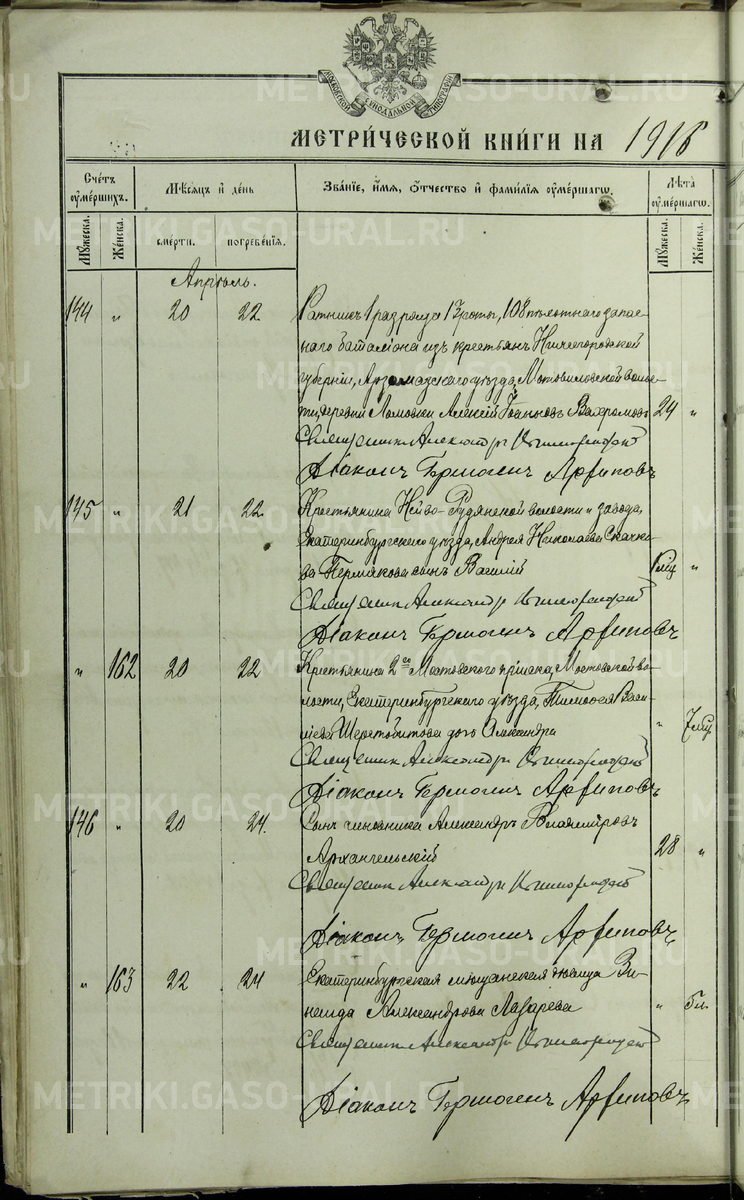 МОСКОВСКОЙ СѴНОДАЛЬНОЙ ТИПОГРАФІИ
МЕТРИ́ЧЕСКОЙ КНИ́ГИ НА 1916
Сче́тъ ѹме́ршихъ.
Мѣ́сяцъ и де́нь
Зва́нїе, и́мя, о́тчество и фами́лїя ѹме́ршагѡ.
Лѣ́та ѹме́ршагѡ.
Мꙋ́жеска.
Же́нска.
сме́рти.
погребе́нїя.
Мꙋ́жеска.
Же́нска.
Апрѣль.
144 " 20 22 Ратникъ 1 разряда 17 роты, 108 пѣхотнаго запас-
наго баталіона изъ крестьянъ Нижегородской
губерніи, Арзамасскаго уѣзда, Мотовиловской волос-
ти, деревни Ломовки Алексѣй Ѳ Вахромовъ 24 "
Священникъ Александръ
Діаконъ Гермогенъ Архиповъ
145 " 21 22 Крестьянина Нейво-Рудянской волости и завода,
Екатеринбургскаго уѣзда, Андрея Николаева Скачко-
ва-Пермякова сынъ Василій мѣс "
Священникъ Александръ
Діаконъ Гермогенъ Архиповъ
" 162 20 22 Крестьянина 2го Мостовского пріиска, Мостовской во-
лости, Екатеринбургскаго уѣзда, Тимоѳея Васи-
лева Шерстобитова дочь Александра " 7 мѣс
Священникъ Александръ
Діаконъ Гермогенъ Архиповъ
146 " 20 24 Сынъ чиновника Александръ Владиміровъ
Архангельскій 28 "
Священникъ Александръ
Діаконъ Гермогенъ Архиповъ
" 163 22 24 Екатеринбургская мѣщанская дѣвица Зи-
наида Александрова Лазарева "
Священникъ Александръ
Діаконъ Гермогенъ Архиповъ
METRIKI.GASO-URAL.RU